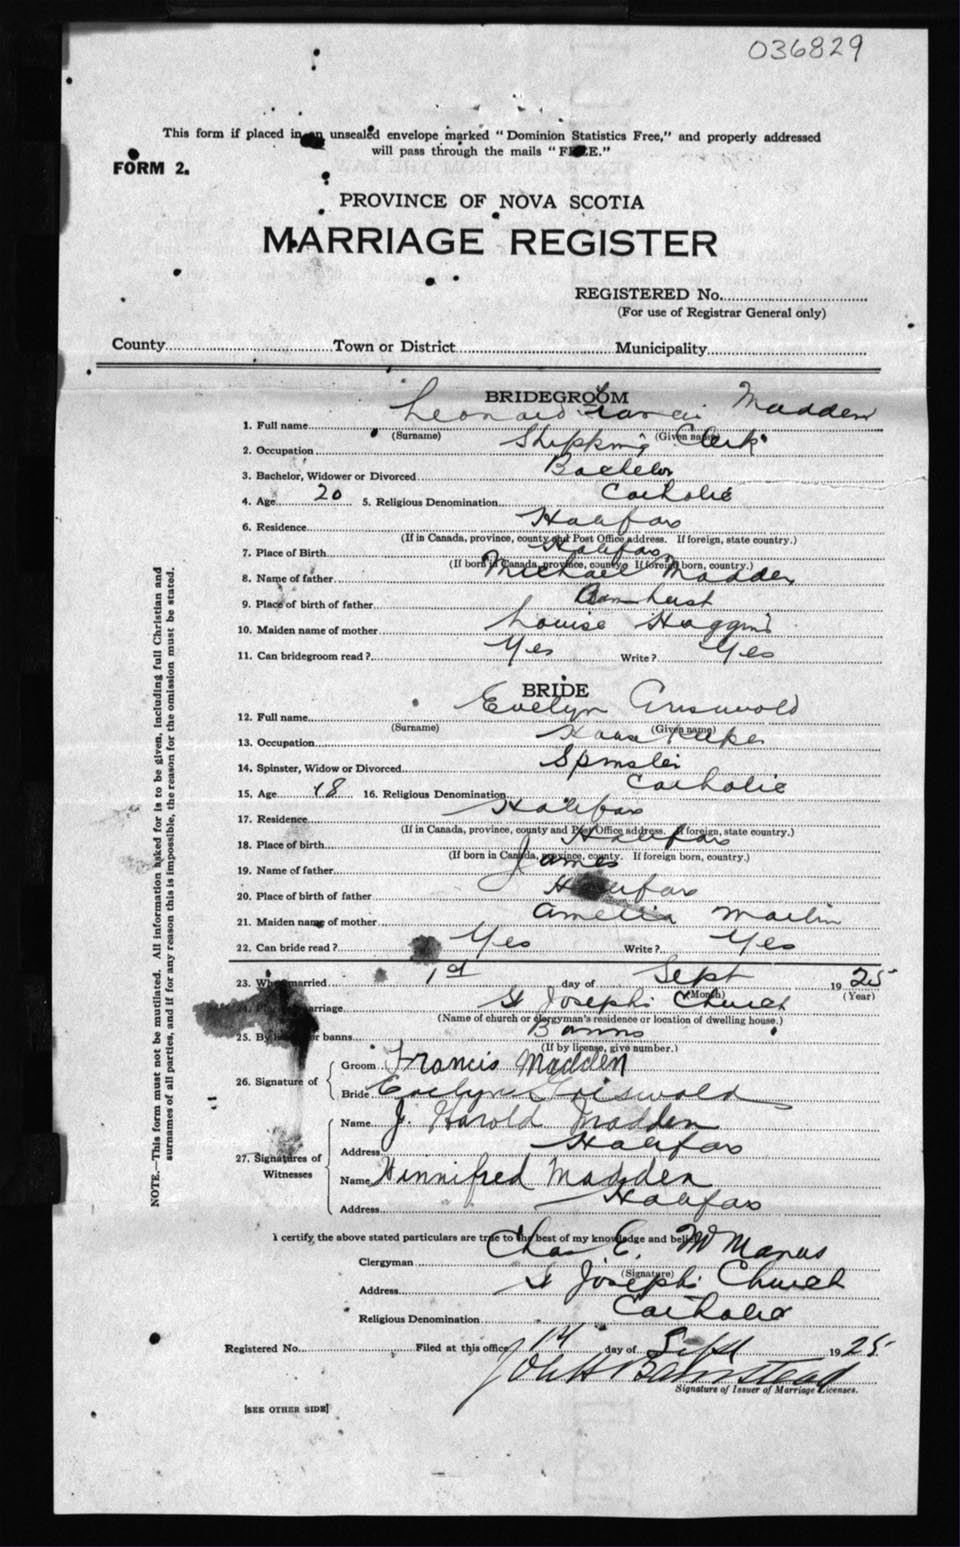 036829
This form if placed in an unsealed envelope marked "Dominion Statistics Free," and properly addressed
will pass through the mails "FREE."
FORM 2.
PROVINCE OF NOVA SCOTIA
MARRIAGE REGISTER
REGISTERED No.
(For use of Registrar General only)
County Town or District Municipality
BRIDEGROOM
1. Full name Leonard Madden
(Surname) (Given name)
2. Occupation Shipping Clerk
3. Bachelor, Widower or Divorced Bachelor
4. Age 20 5. Religious Denomination Catholic
6. Residence Halifax
(If in Canada, province, county and Post Office address. If foreign, state country.)
7. Place of Birth Halifax
(If born in Canada, province, county. If foreign born, country.)
8. Name of father Michael Madden
9. Place of birth of father Amherst
10. Maiden name of mother Louise
11. Can bridegroom read? Yes Write? Yes
BRIDE
12. Full name Evelyn Griswold
(Surname) (Given name)
13. Occupation
14. Spinster, Widow or Divorced Spinster
15. Age 18 16. Religious Denomination Catholic
17. Residence Halifax
(If in Canada, province, county and Post Office address. If foreign, state country.)
18. Place of birth Halifax
(If born in Canada, province, county. If foreign born, country.)
19. Name of father James
20. Place of birth of father Halifax
21. Maiden name of mother Amelia
22. Can bride read? Yes Write? Yes
23. When married 1st day of Sept 1925
(Month) (Year)
marriage St Josephs Church
(Name of church or clergyman's residence or location of dwelling house.)
25. By or banns Banns
(If by license, give number.)
26. Signature of
Groom Francis Madden
Bride Evelyn Griswold
27. Signatures of
Witnesses
Name J. Harold Madden
Address Halifax
Name Winnifred Madden
Address Halifax
I certify the above stated particulars are true to the best of my knowledge and belief
Clergyman Chas E. McManus
(Signature)
Address St Josephs Church
Religious Denomination Catholic
Registered No. Filed at this office 14 day of Sept 1925
Signature of Issuer of Marriage Licenses.
[SEE OTHER SIDE]
NOTE.—This form must not be mutilated. All information asked for is to be given, including full Christian and
surnames of all parties, and if for any reason this is impossible, the reason for the omission must be stated.